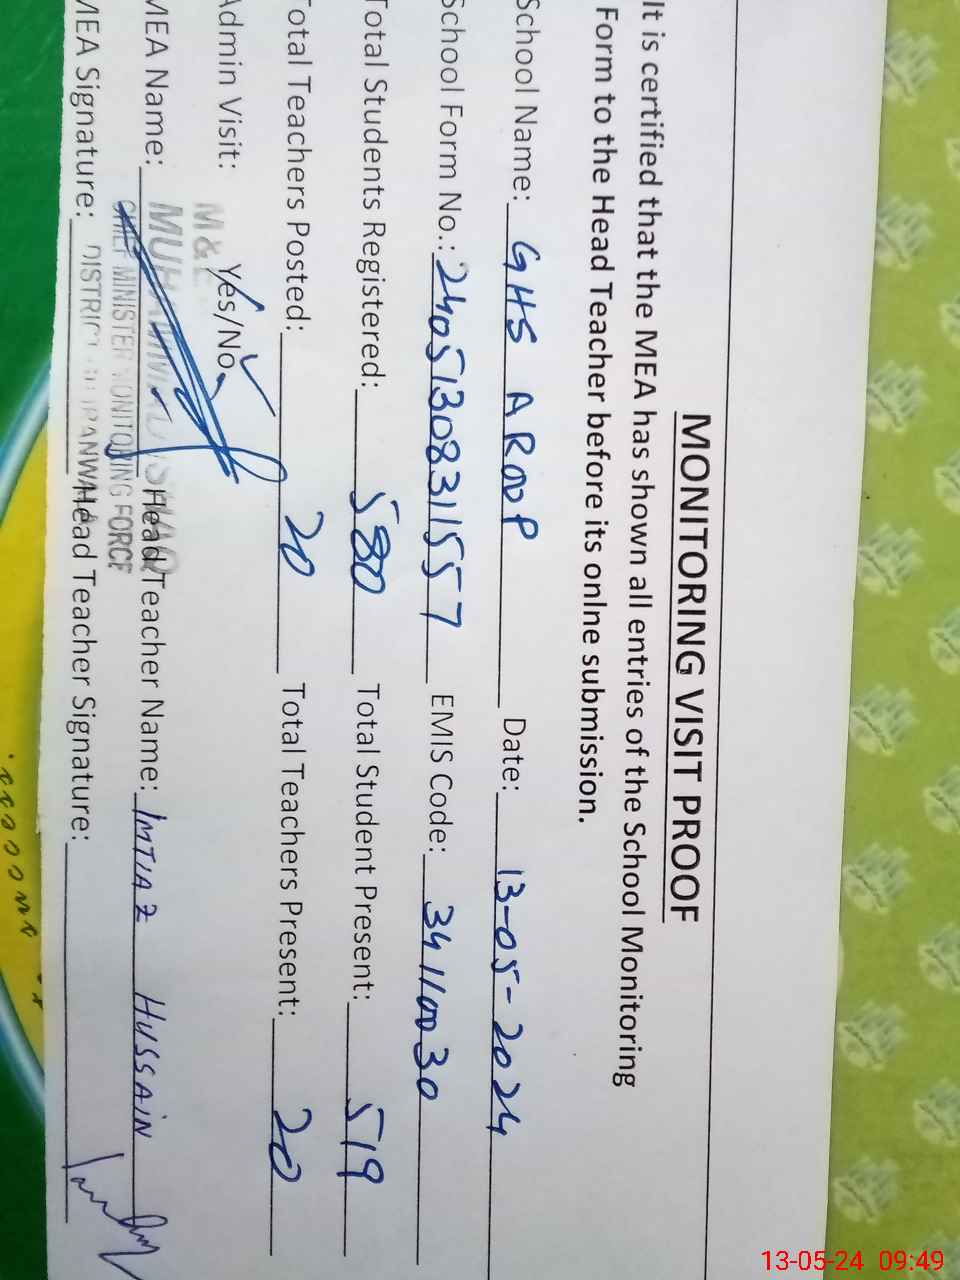 MONITORING VISIT PROOF
It is certified that the MEA has shown all entries of the School Monitoring
Form to the Head Teacher before its onlne submission.
School Name: GHS AROOP Date: 13-05-2024
School Form No.: 2405130831157 EMIS Code: 34110030
Total Students Registered: 580 Total Student Present: 519
Total Teachers Posted: 20 Total Teachers Present: 20
Admin Visit: Yes/No
M&
MEA Name: Head Teacher Name: IMTIAZ HUSSAIN
CHIEF MINISTER MONITORING FORCE
MEA Signature: Head Teacher Signature:
13-05-24 09:49